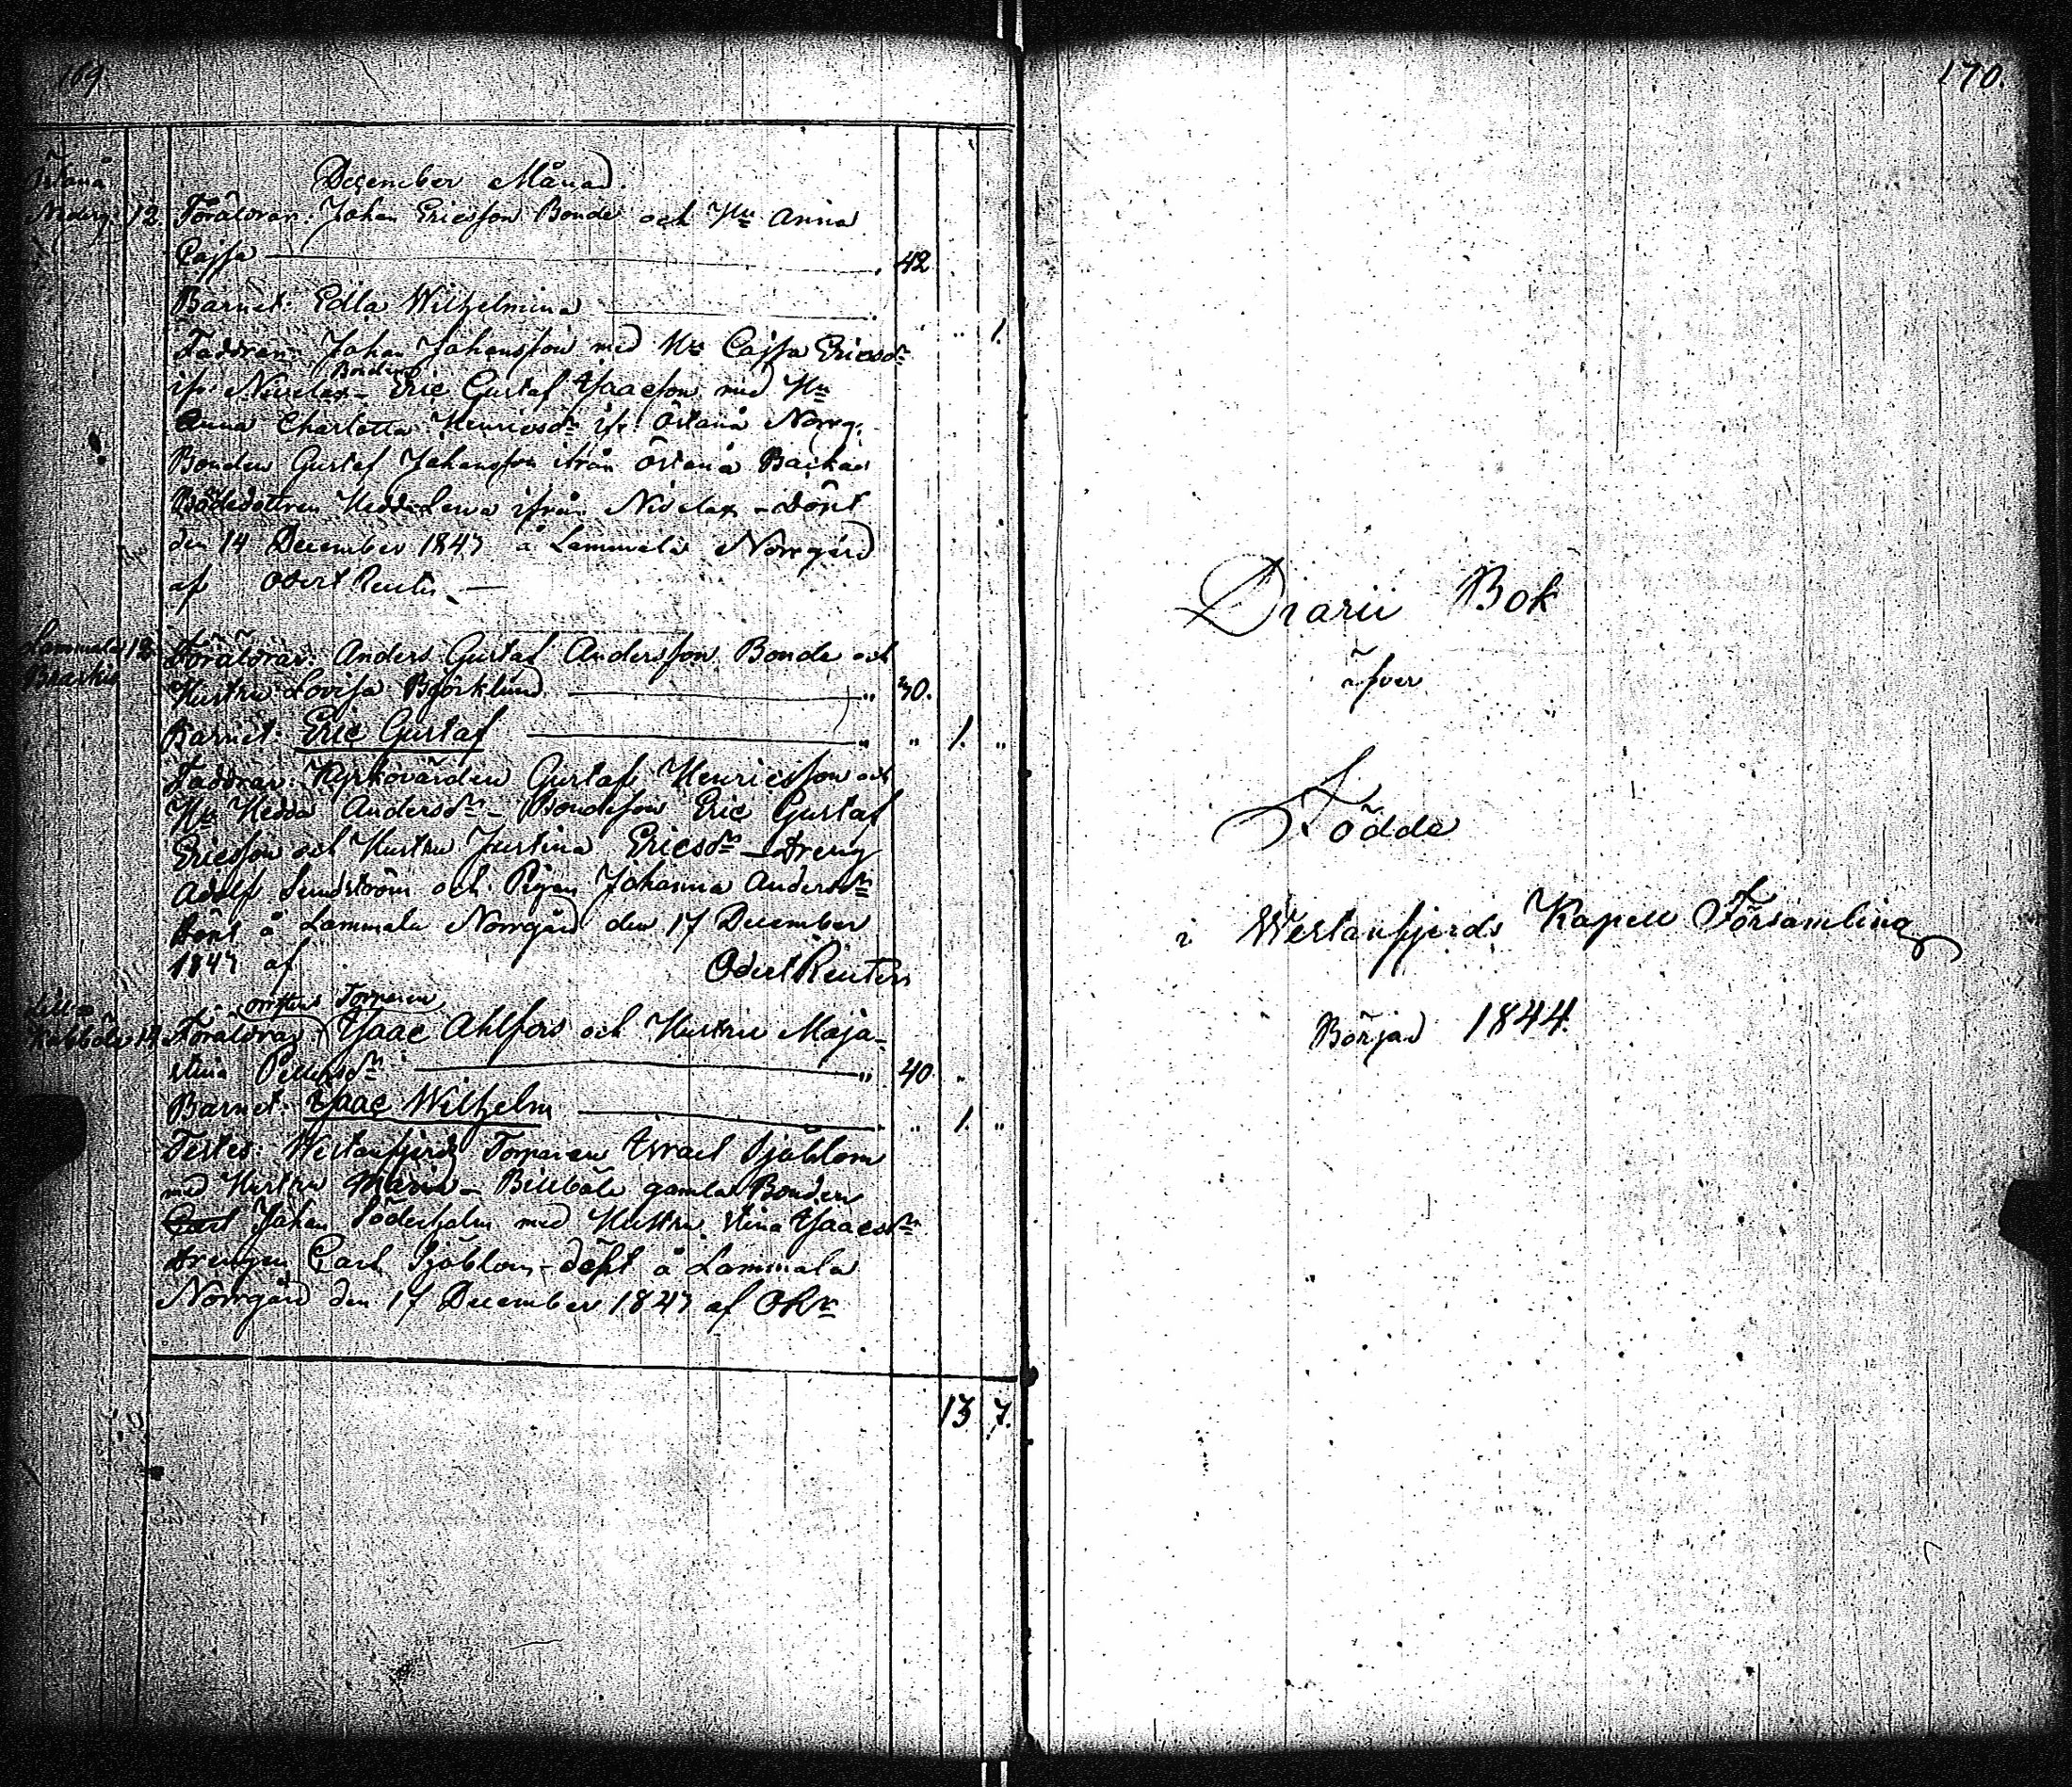 169.
December Månad.
Östanå
Nederg. 12. Föräldrar: Johan Ericsson Bonde och Hu Anna
Cajsa 42
Barnet: Edla Wilhelmina " 1.
Faddrar: Johan Johansson med Hu Cajsa Ericsdr
Bonden
ifr. Nivelax - Eric Gustaf Isaacson med Hu
Anna Charlotta Henricsdr ifr. Östanå Norrg.
Bonden Gustaf Johansson ifrån Östanå Backas
Hedda Lena ifrån Nivelax - Döpt
den 14 December 1843 å Lammala Norrgård
af Odert Reuter
Lammala 12. Föräldrar: Anders Gustaf Andersson Bonde och
Hustru Lovisa Björklund " 30.
Barnet: Eric Gustaf " " 1. "
Faddrar: Kyrkovärden Gustaf Henricsson och
Hu Hedda Andersdr - Bondeson Eric Gustaf
Ericsson och Hustru Justina Ericsdr - Dreng
Adolf Sundström och Pigan Johanna Andersdr
Döpt å Lammala Norrgård den 17 December
1843 af Odert Reuter
Torparen
Lill-
Föräldrar Isaac Ahlfors och Hustru Maja-
stina " 40. "
Barnet: Isaac Wilhelm " 1. "
Testes: Westanfjerds Torparen Israel Sjöblom
med Hustru Maria - Billböle gamla Bonden
Carl Johan Söderholm med Hustru Stina Isaacsdr
Drengen Carl Sjöblom - döpt å Lammala
Norrgård den 17 December 1843 af ORr
13. 7.
170.
Diarii Bok
öfver
Födde
i Westanfjerds Kapell Församling
Börjad 1844.